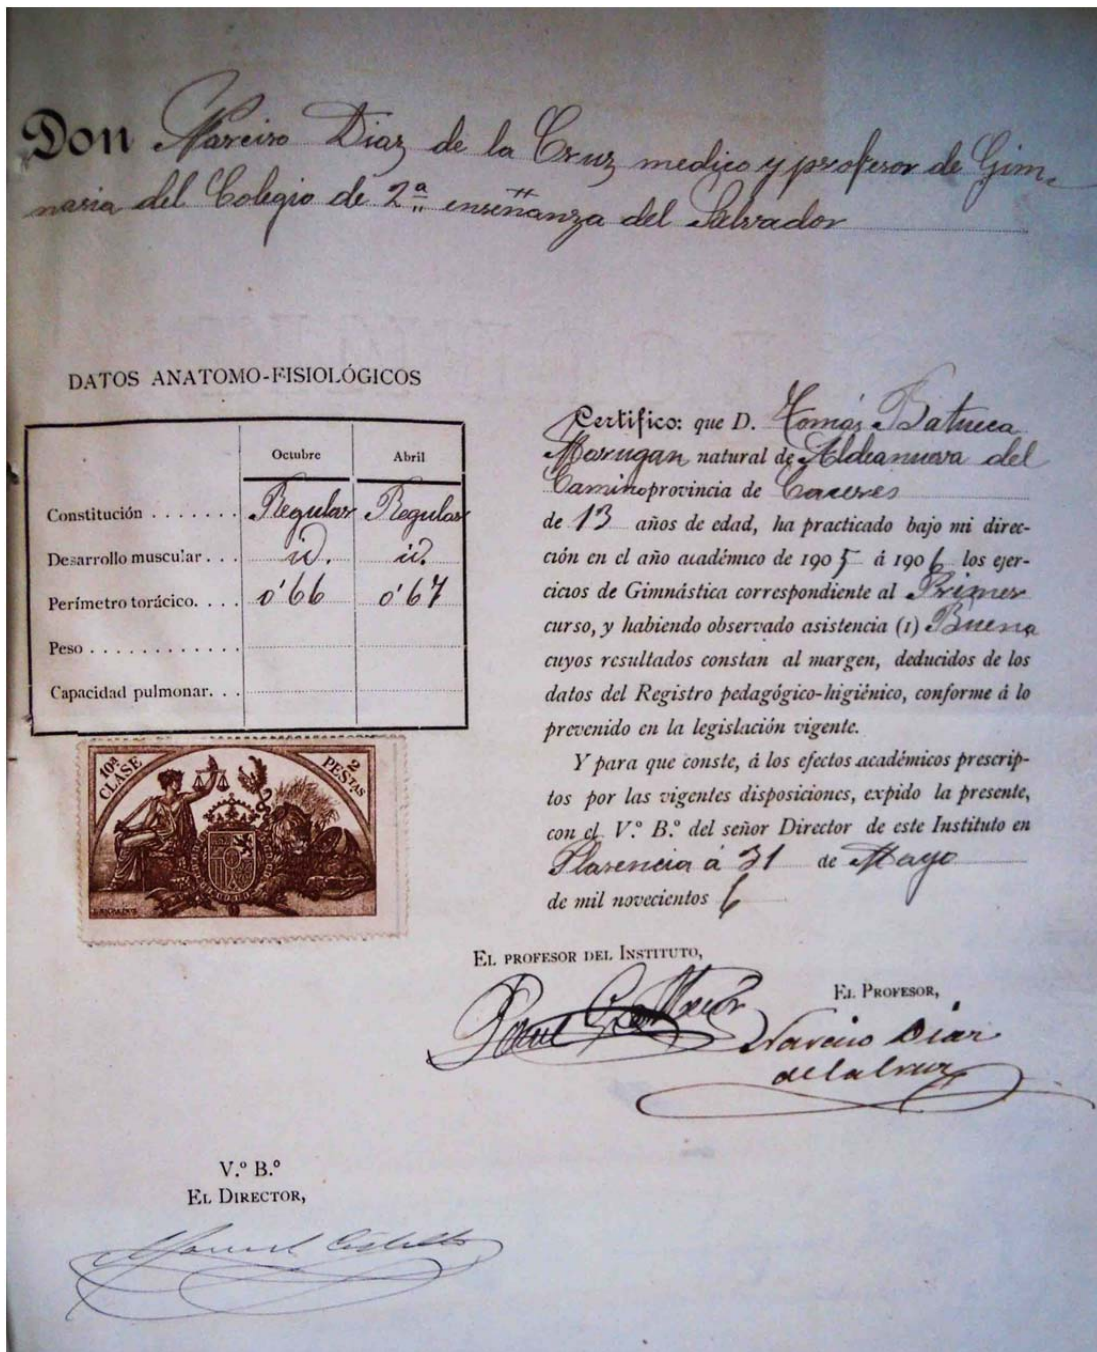 Don Narciso Diaz de la Cruz medico y profesor de Gim-
nasia del Colegio de 2ª enseñanza del Salvador
DATOS ANATOMO-FISIOLÓGICOS
Octubre Abril
Constitución . . . . . . . Regular Regular
Desarrollo muscular . . . id. id.
Perímetro torácico. . . . 0'66 0'67
Peso . . . . . . . . . . . .
Capacidad pulmonar. . .
10ª CLASE 2 PESTAS
Certifico: que D. Tomás Batueca
Marugan natural de Aldeanueva del
Camino provincia de Caceres
de 13 años de edad, ha practicado bajo mi direc-
ción en el año académico de 1905 á 1906 los ejer-
cicios de Gimnástica correspondiente al Primer
curso, y habiendo observado asistencia (1) Buena
cuyos resultados constan al margen, deducidos de los
datos del Registro pedagógico-higiénico, conforme á lo
prevenido en la legislación vigente.
Y para que conste, á los efectos académicos prescrip-
tos por las vigentes disposiciones, expido la presente,
con el V.º B.º del señor Director de este Instituto en
Plasencia á 31 de Mayo
de mil novecientos 6
EL PROFESOR DEL INSTITUTO,
EL PROFESOR,
Narciso Diaz
de la Cruz
V.º B.º
EL DIRECTOR,
Manuel Castillo